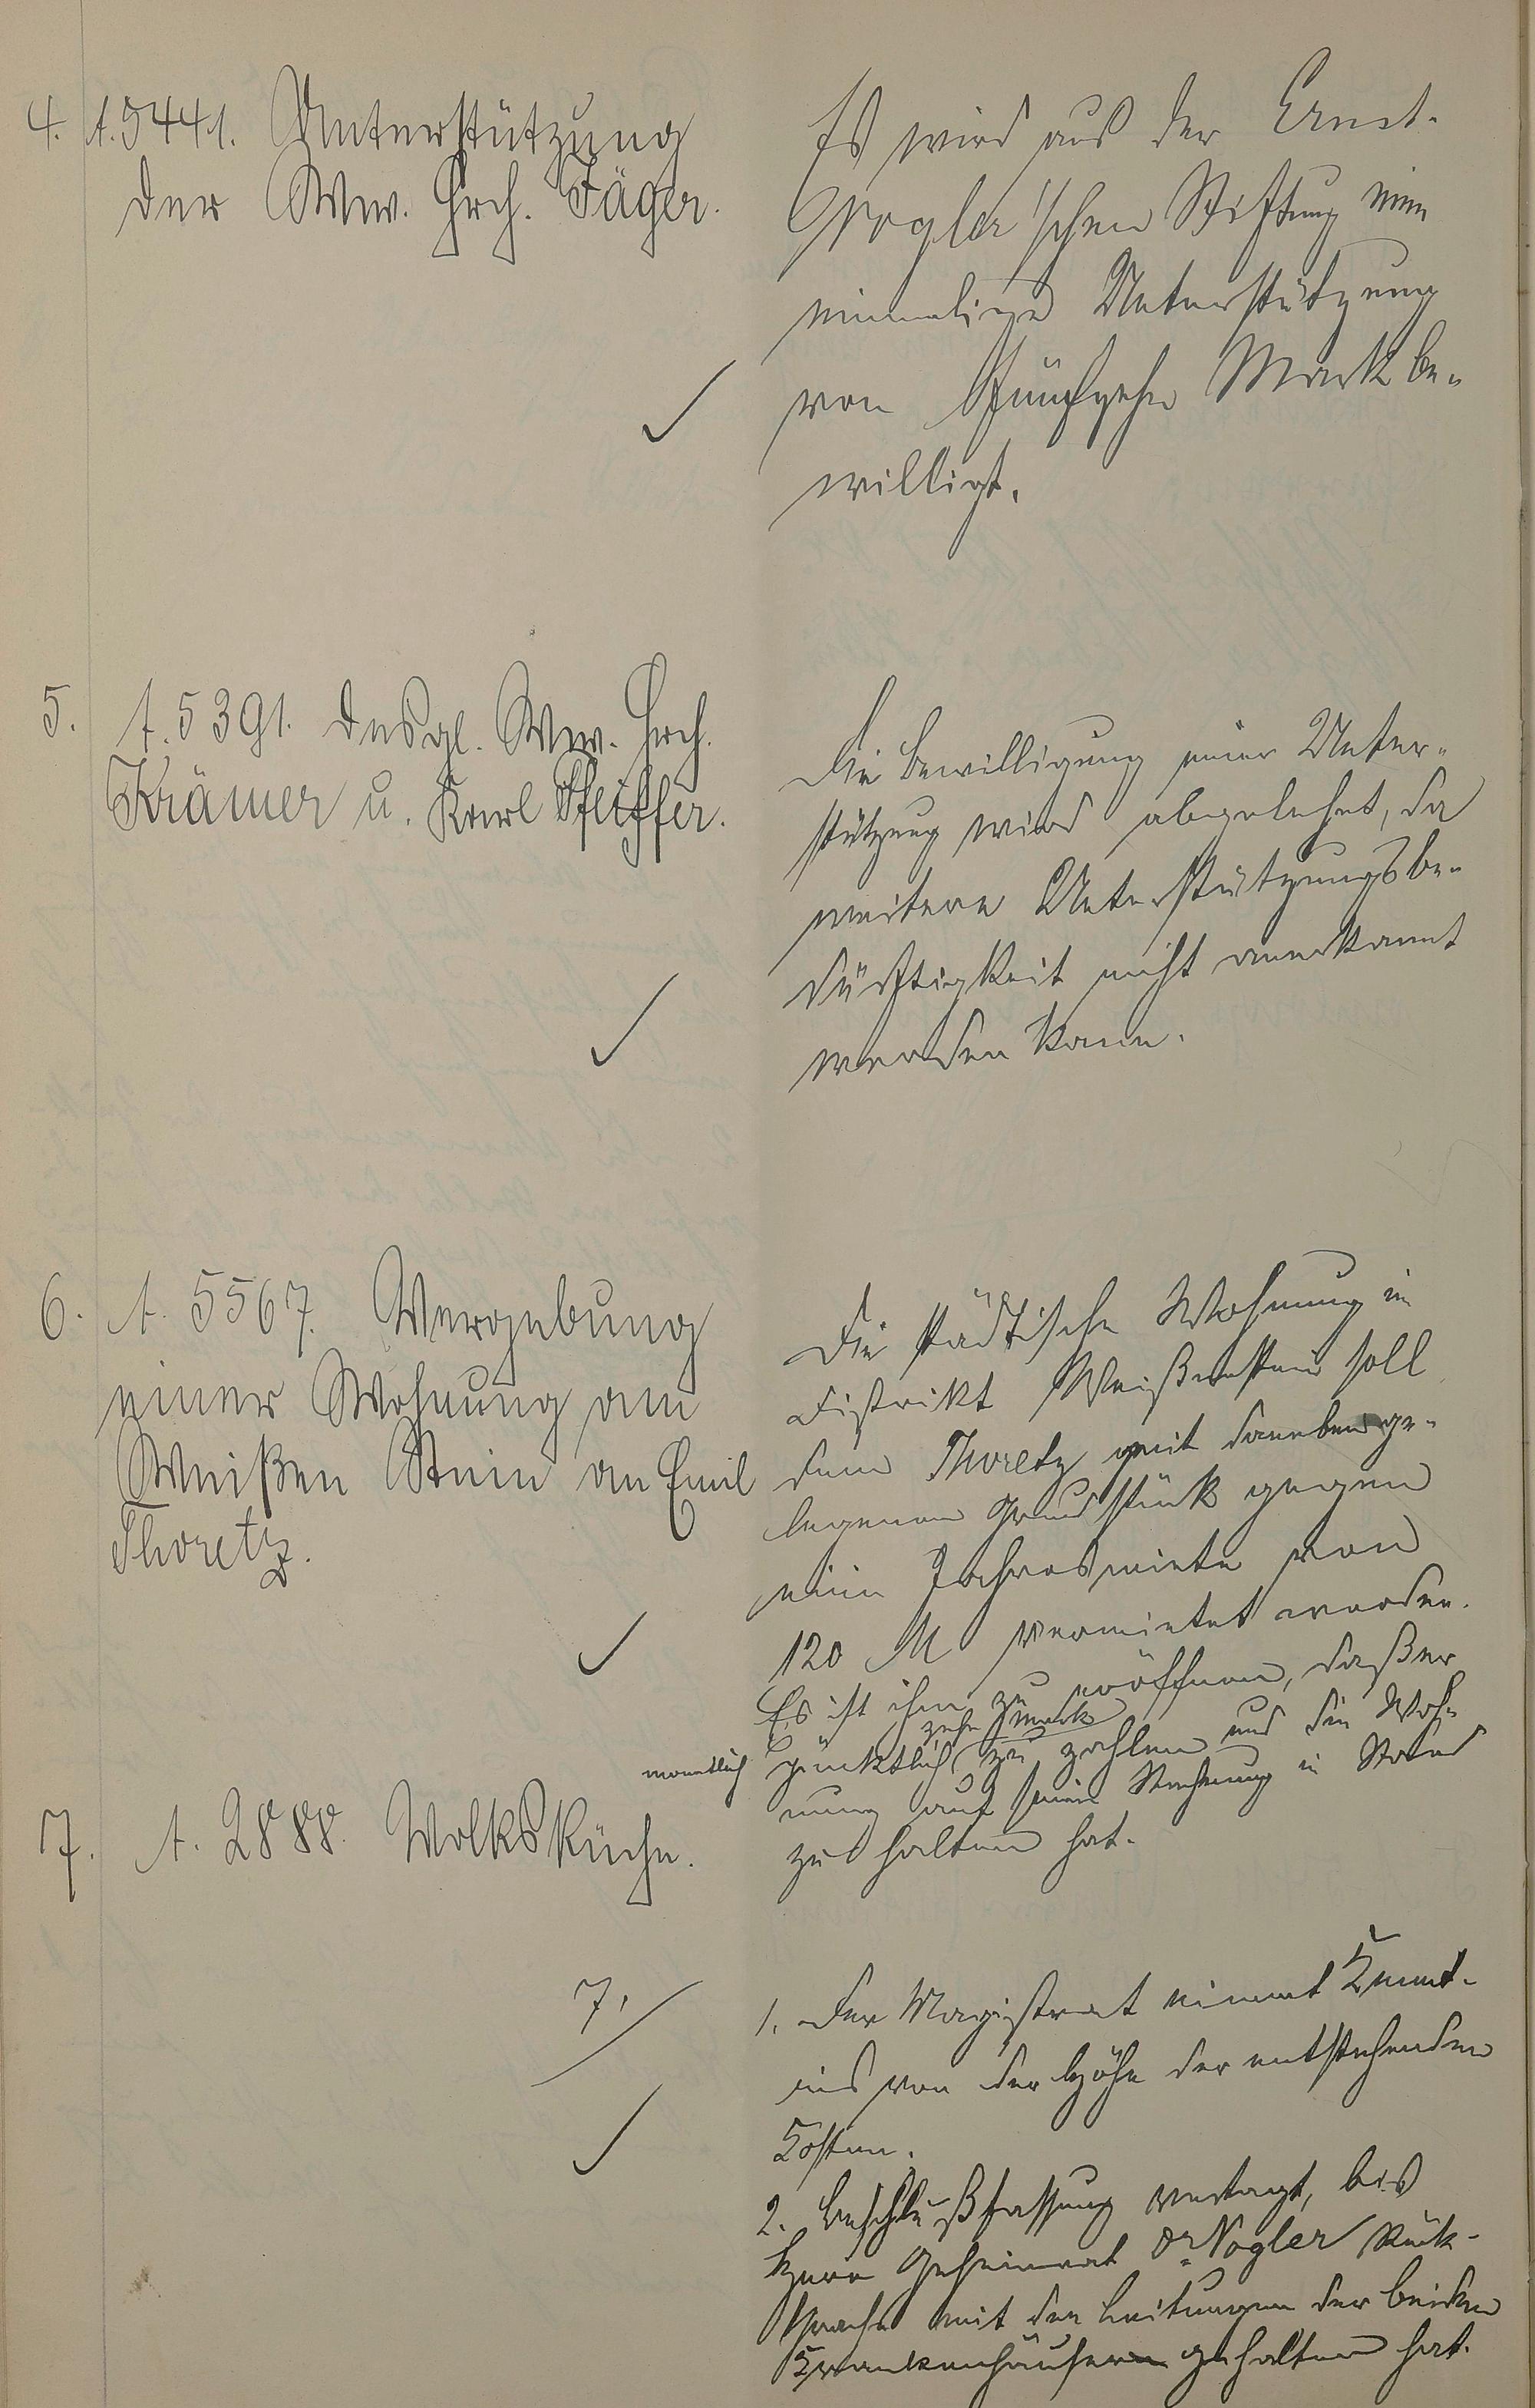 4. A. 5441. Unterstützung
der Ww. Hrch. Jäger.
Es wird aus der Ernst-
Vogler'schen Stiftung eine
einmalige Unterstützung
von Fünfzehn Mark be-
willigt.
5. A. 5391. desgl. Ww. Hrch.
Krämer u. Karl Pfeiffer.
Die Bewilligung einer Unter-
stützung wird abgelehnt, da
weitere Unterstützungsbe-
dürftigkeit nicht anerkannt
werden kann.
6. A. 5567. Vergebung
einer Wohnung am
Weißen Stein an Emil
Thoretz.
Die städtische Wohnung im
Distrikt Weißenstein soll
dem Thoretz mit daneben ge-
legenem Grundstück gegen
eine Jahresmiete von
120 M vermietet werden.
Es ist ihm zu eröffnen, daß er
monatlich pünktlich zehn Mark zu zahlen und die Woh-
nung auf seine Rechnung in Stand
zu halten hat.
7. A. 2888. Volksküche.
7.
1. Der Magistrat nimmt Kennt-
nis von der Höhe der entstehenden
Kosten.
2. Beschlußfassung vertagt, bis
Herr Geheimrat Dr Vogler Rück-
sprache mit den Leitungen der beiden
Krankenhäuser gehalten hat.